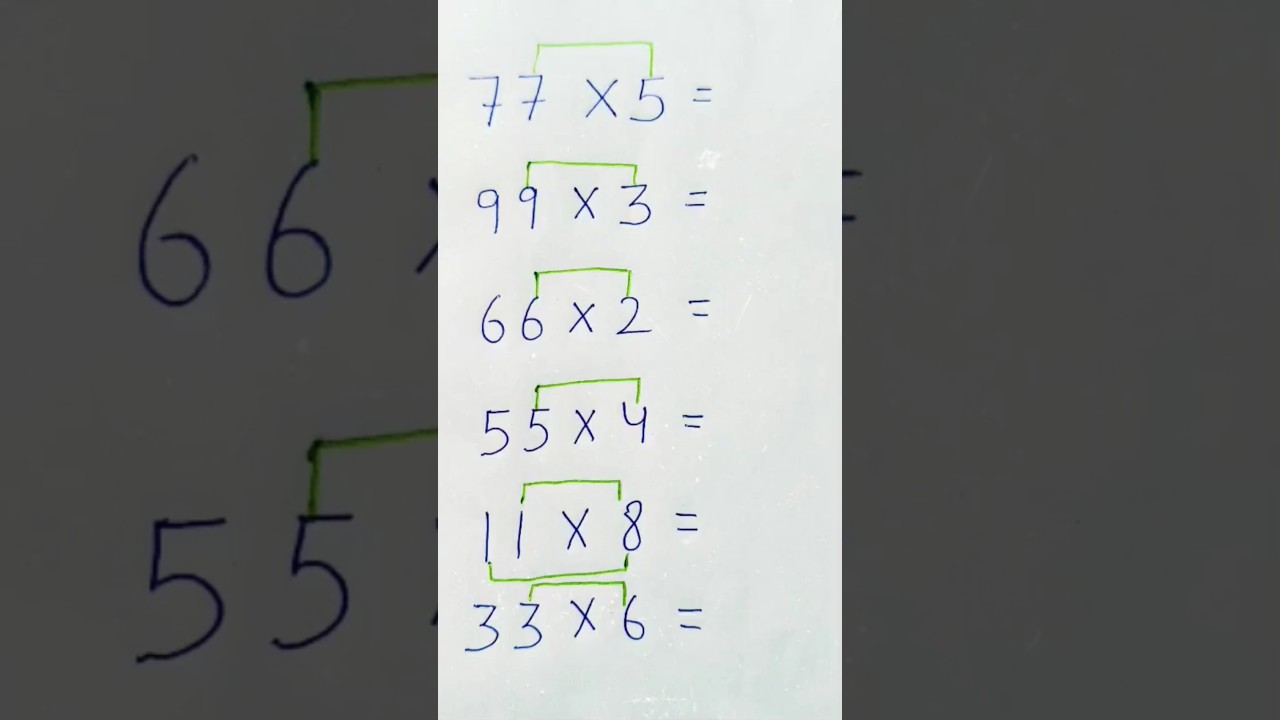 77 X 5 =
99 X 3 =
66 X 2 =
55 X 4 =
11 X 8 =
33 X 6 =